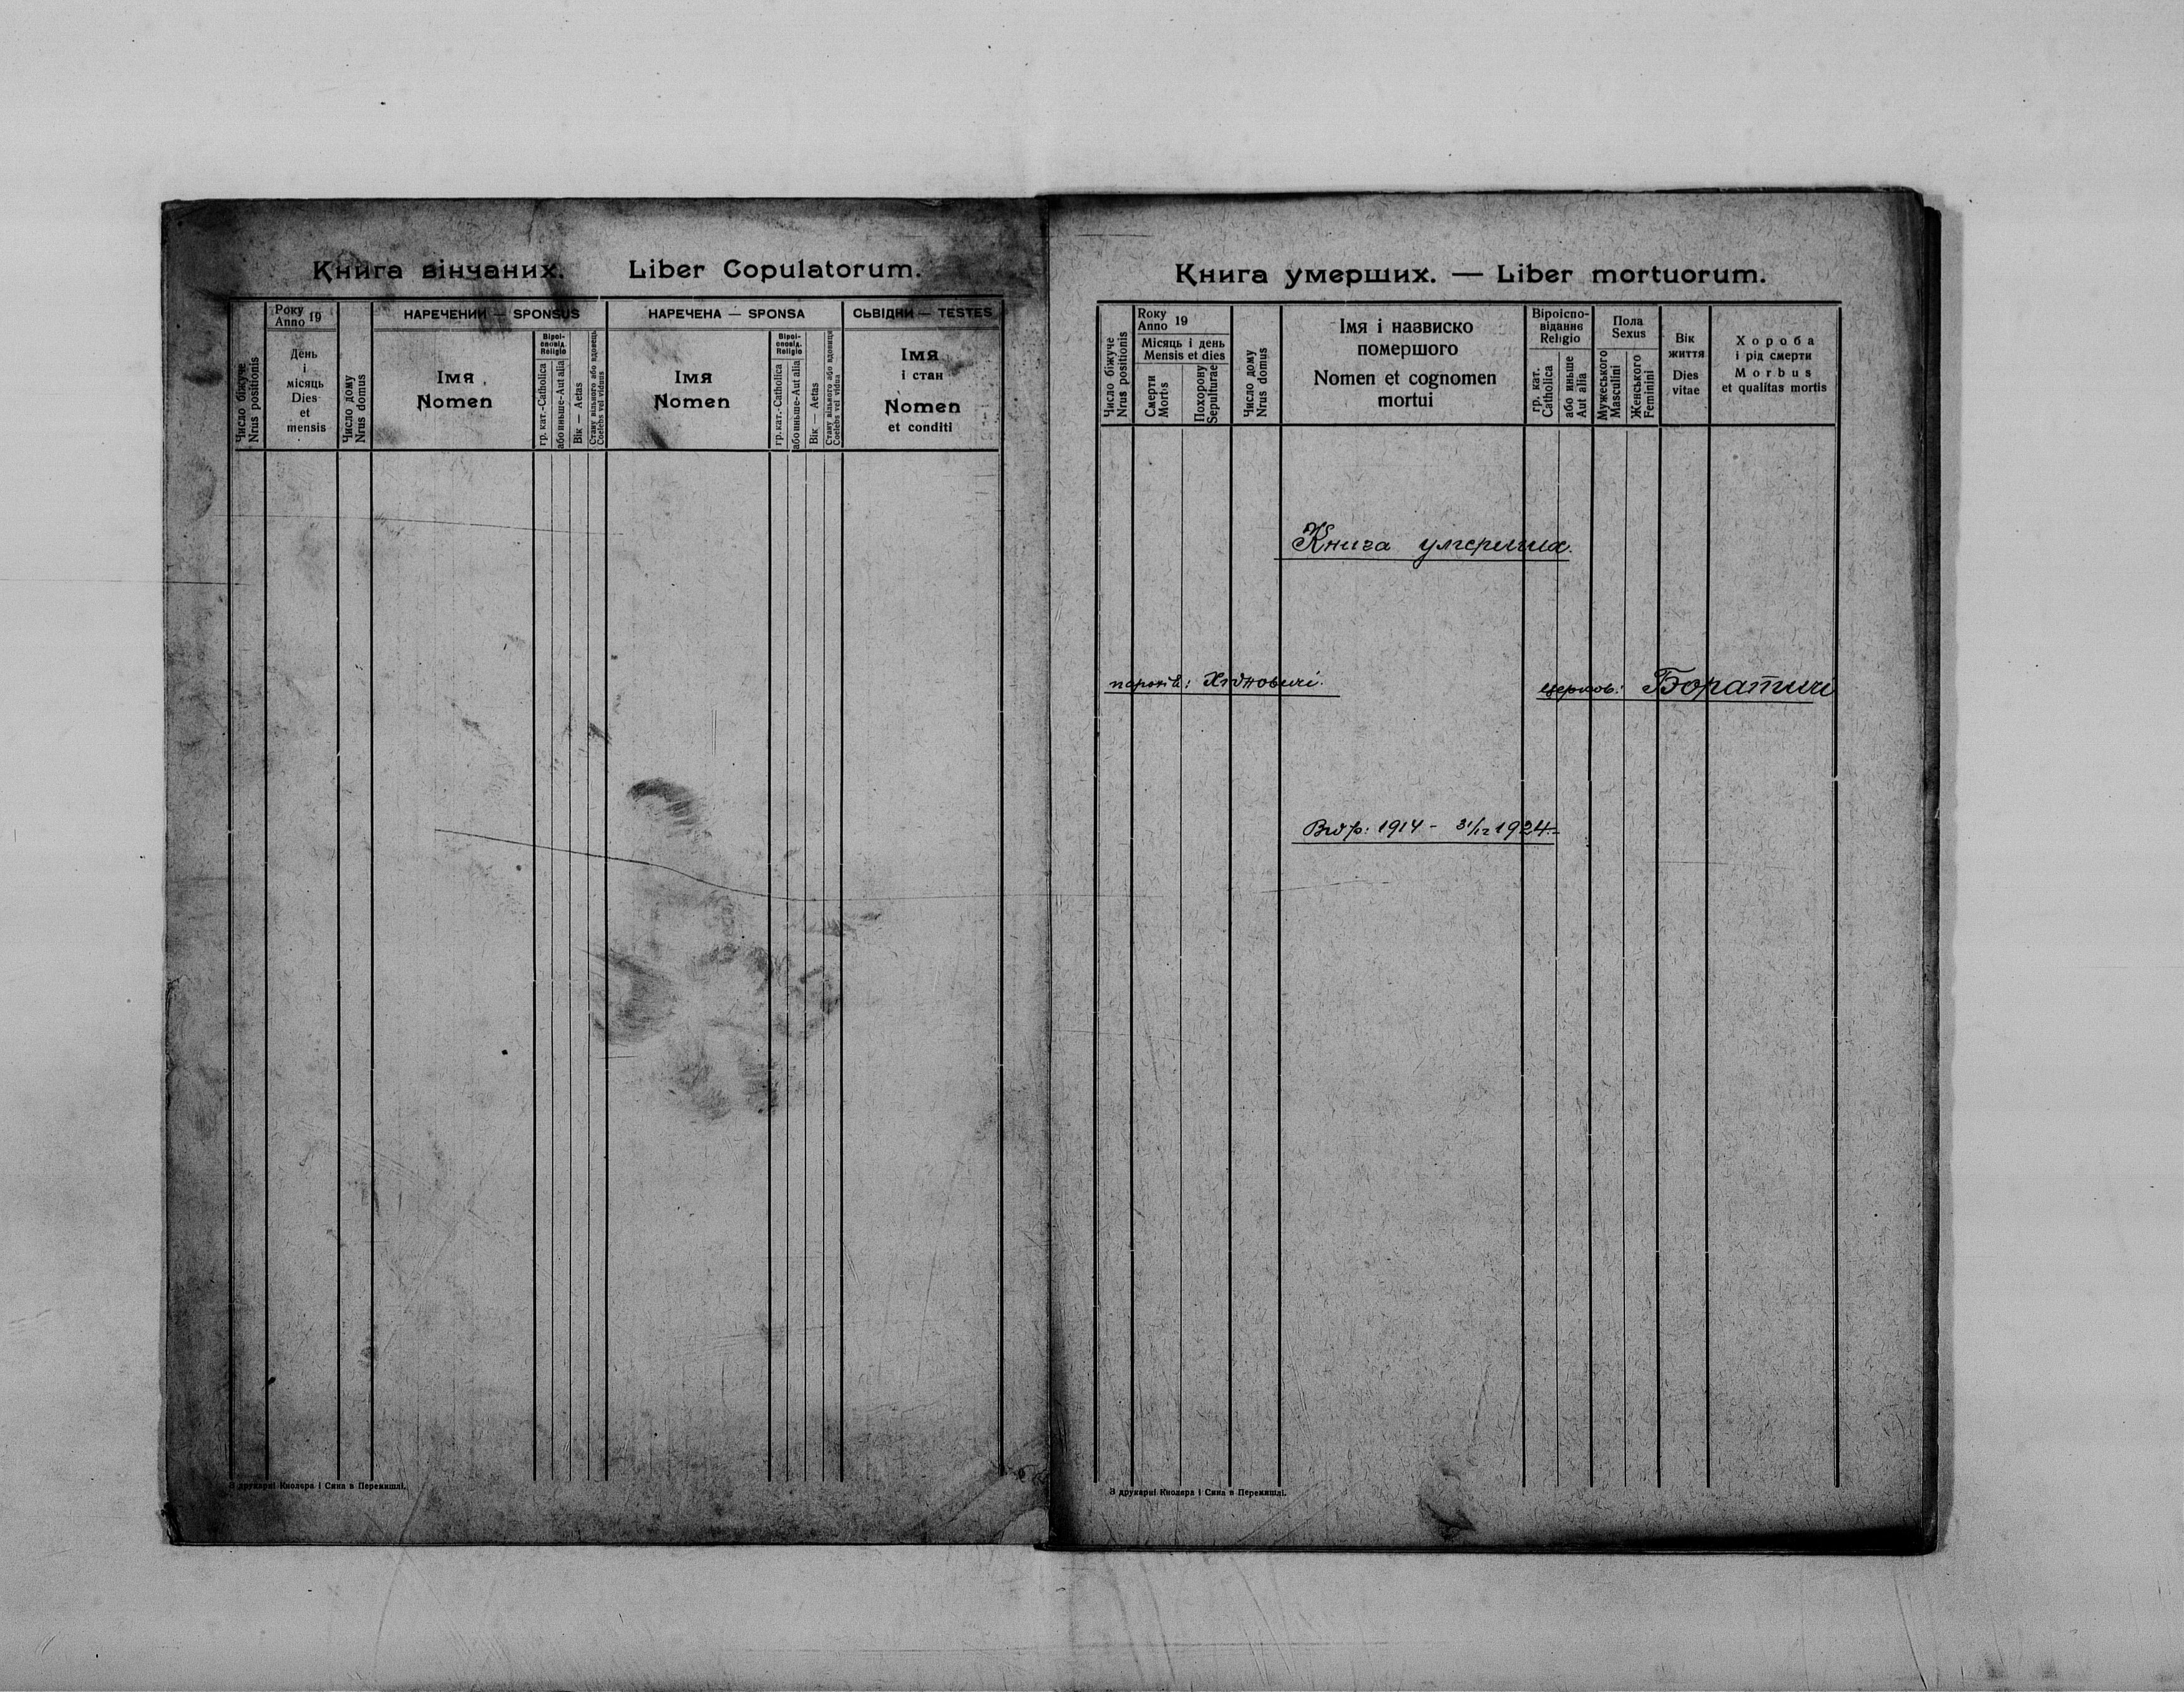 Книга вінчаних. Liber Copulatorum.
Число біжуче
Nrus positionis
Року
Anno 19
День
і
місяць
Dies
et
mensis
Число дому
Nrus domus
НАРЕЧЕНИЙ — SPONSUS
Імя
Nomen
Віроі-
сповід.
Religio
гр. кат.-Catholica
або иньше-Aut alia
Вік — Aetas
Стану вільного або вдовець
Coelebs vel viduus
НАРЕЧЕНА — SPONSA
Імя
Nomen
Віроі-
сповід.
Religio
гр. кат.-Catholica
або иньше-Aut alia
Вік — Aetas
Стану вільного або вдовиця
Coelebs vel vidua
СЬВІДКИ — TESTES
Імя
і стан
Nomen
et conditi
З друкарні Кнолєра і Сина в Перемишлі.
Книга умерших. — Liber mortuorum.
Число біжуче
Nrus positionis
Року
Anno 19
Місяць і день
Mensis et dies
Смерти
Mortis
Похорону
Sepulturae
Число дому
Nrus domus
Імя іназвиско
помершого
Nomen et cognomen
mortui
Віроіспо-
віданнє
Religio
гр. кат.
Catholica
або иньше
Aut alia
Пола
Sexus
Мужеського
Masculini
Женського
Feminini
Вік
життя
Dies
vitae
Хороба
і рід смерти
Morbus
et qualitas mortis
Книга умерших.
парохія: Хідновичі.
церков: Боратичі
Від р: 1914 - 31/12 1924.-
З друкарні Кнолєра і Сина в Перемишлі.